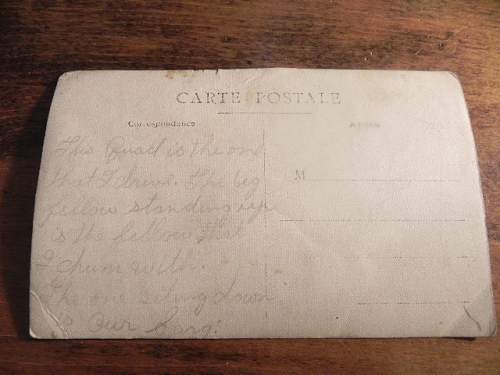 CARTE POSTALE
Correspondance
M
This Quad is the one
that I drive. The big
fellow standing up
is the fellow that
I chum with.
The one siting down
is Our Sarg.